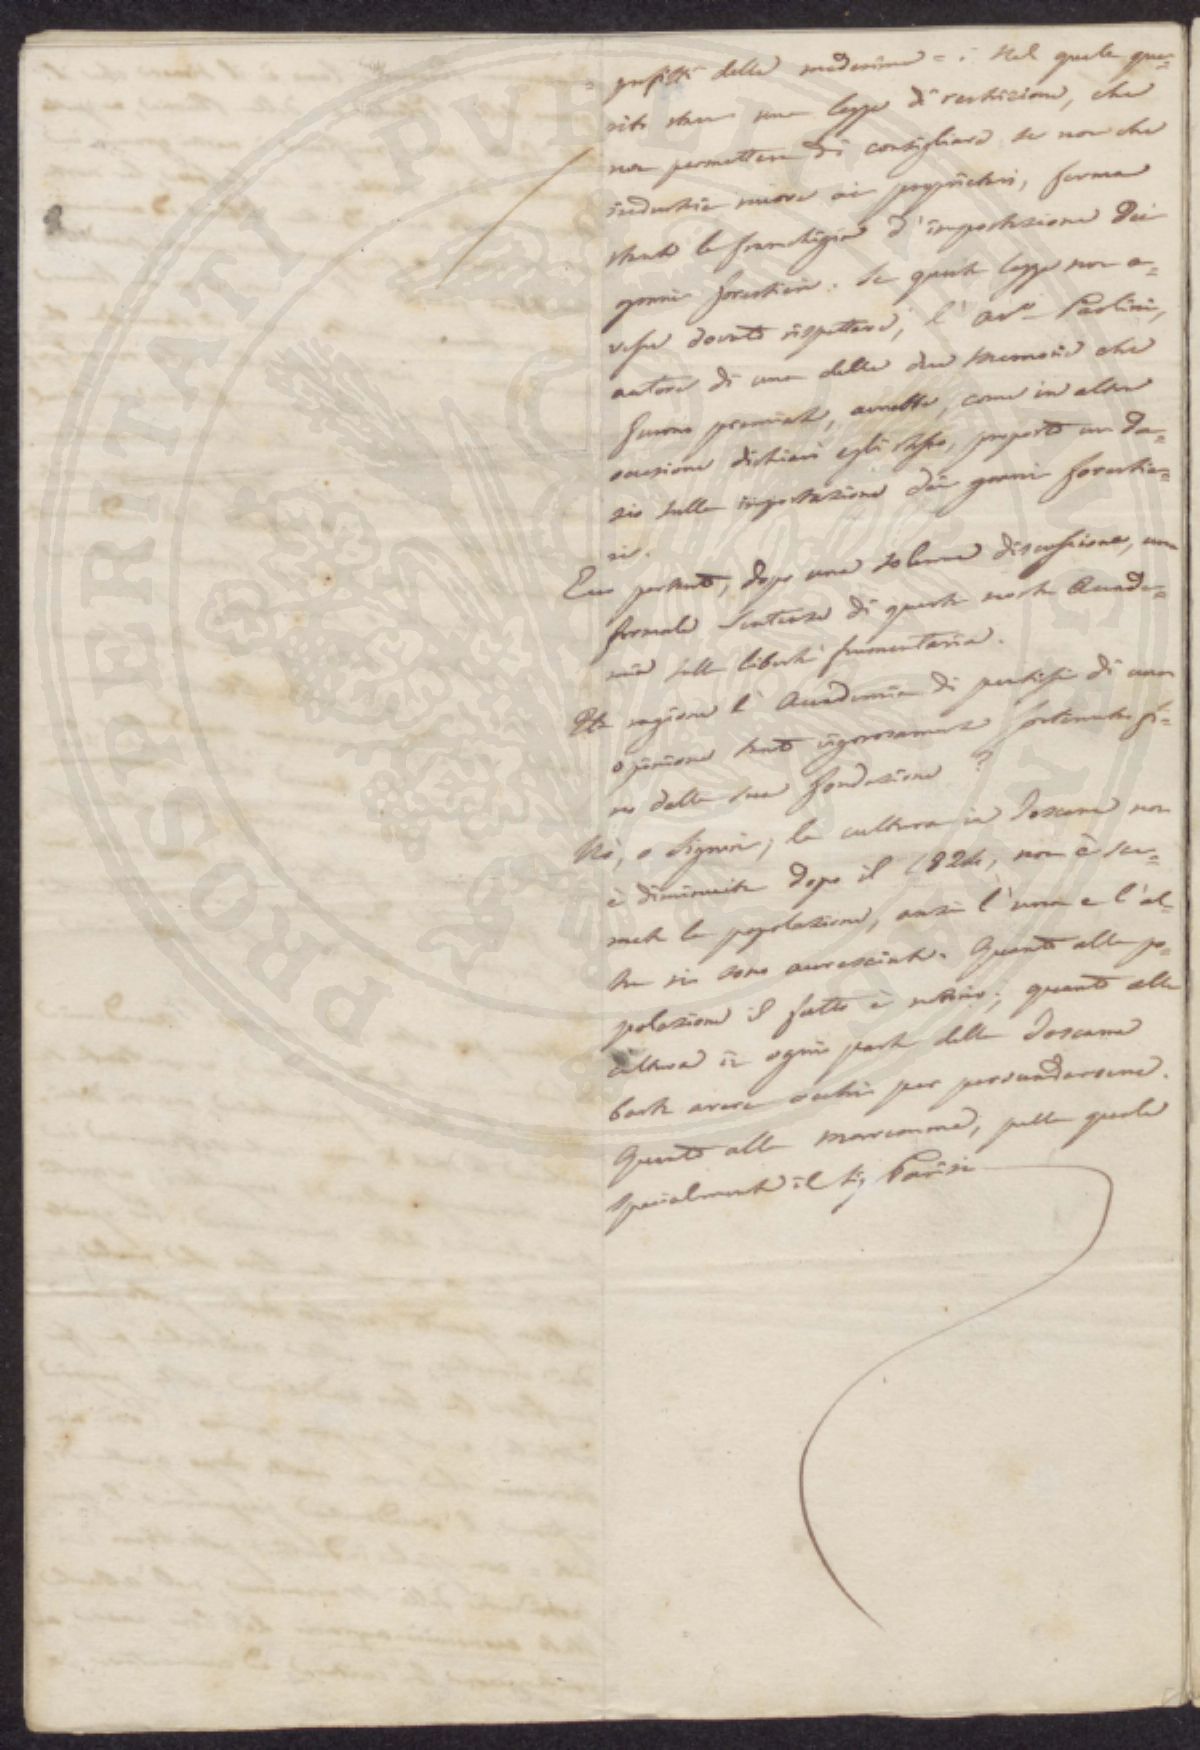 = profitti della medesima = : Nel quale que=
sito stava una legge di restrizione, che
non permetteva di consigliare se non che
industrie nuove ai proprietari, ferma
stante la franchigia d'importazione dei
grani forestieri. Se questa legge non a=
vesse dovuto rispettare, l' Avv.to Paolini,
autore di una delle due Memorie che
furono premiate, avrebbe, come in altra
occasione dichiarò egli stesso, proposto un da=
zio sulla importazione dei grani forestie=
ri.
Ecco pertanto, dopo una solenne discussione, una
formale sentenza di questa nostra Accade=
mia sulla libertà frumentaria.
Ha ragione l' Accademia di pentirsi di una
opinione tanto vigorosamente sostenuta fi=
no dalla sua fondazione ?
Nò, o Signori; la cultura in Toscana non
è diminuita dopo il 1824, non è sce=
mata la popolazione, anzi l'una e l'al=
tra si sono accresciute. Quanto alla po=
polazione il fatto è notorio; quanto alla
cultura in ogni parte della Toscana
basta avere occhi per persuadersene.
Quanto alla maremma, sulla quale
specialmente il Sig
PROSPERITATI PVBLICAE AVGENDAE